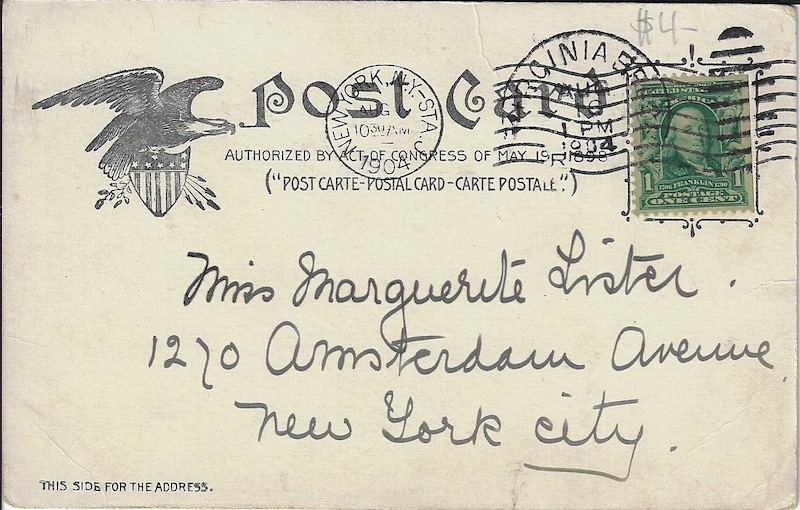 $4-
Post Card
AUTHORIZED BY ACT OF CONGRESS OF MAY 19, 1898
("POST CARTE-POSTAL CARD-CARTE POSTALE".)
NEW YORK, N.Y-STA. J
AUG
1030AM
1904
VIRGINIA BE
AUG
1 PM
1904
R
1 FRANKLIN 1
POSTAGE
ONE CENT
Miss Marguerite Lister.
1270 Amsterdam Avenue.
New York city.
THIS SIDE FOR THE ADDRESS.